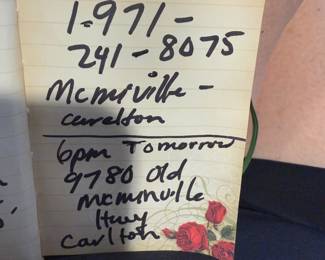 1-971-
241-8075
Mcmiville-
carelton
6pm Tomorrow
9780 Old
mcminville
Hwy
Carlton